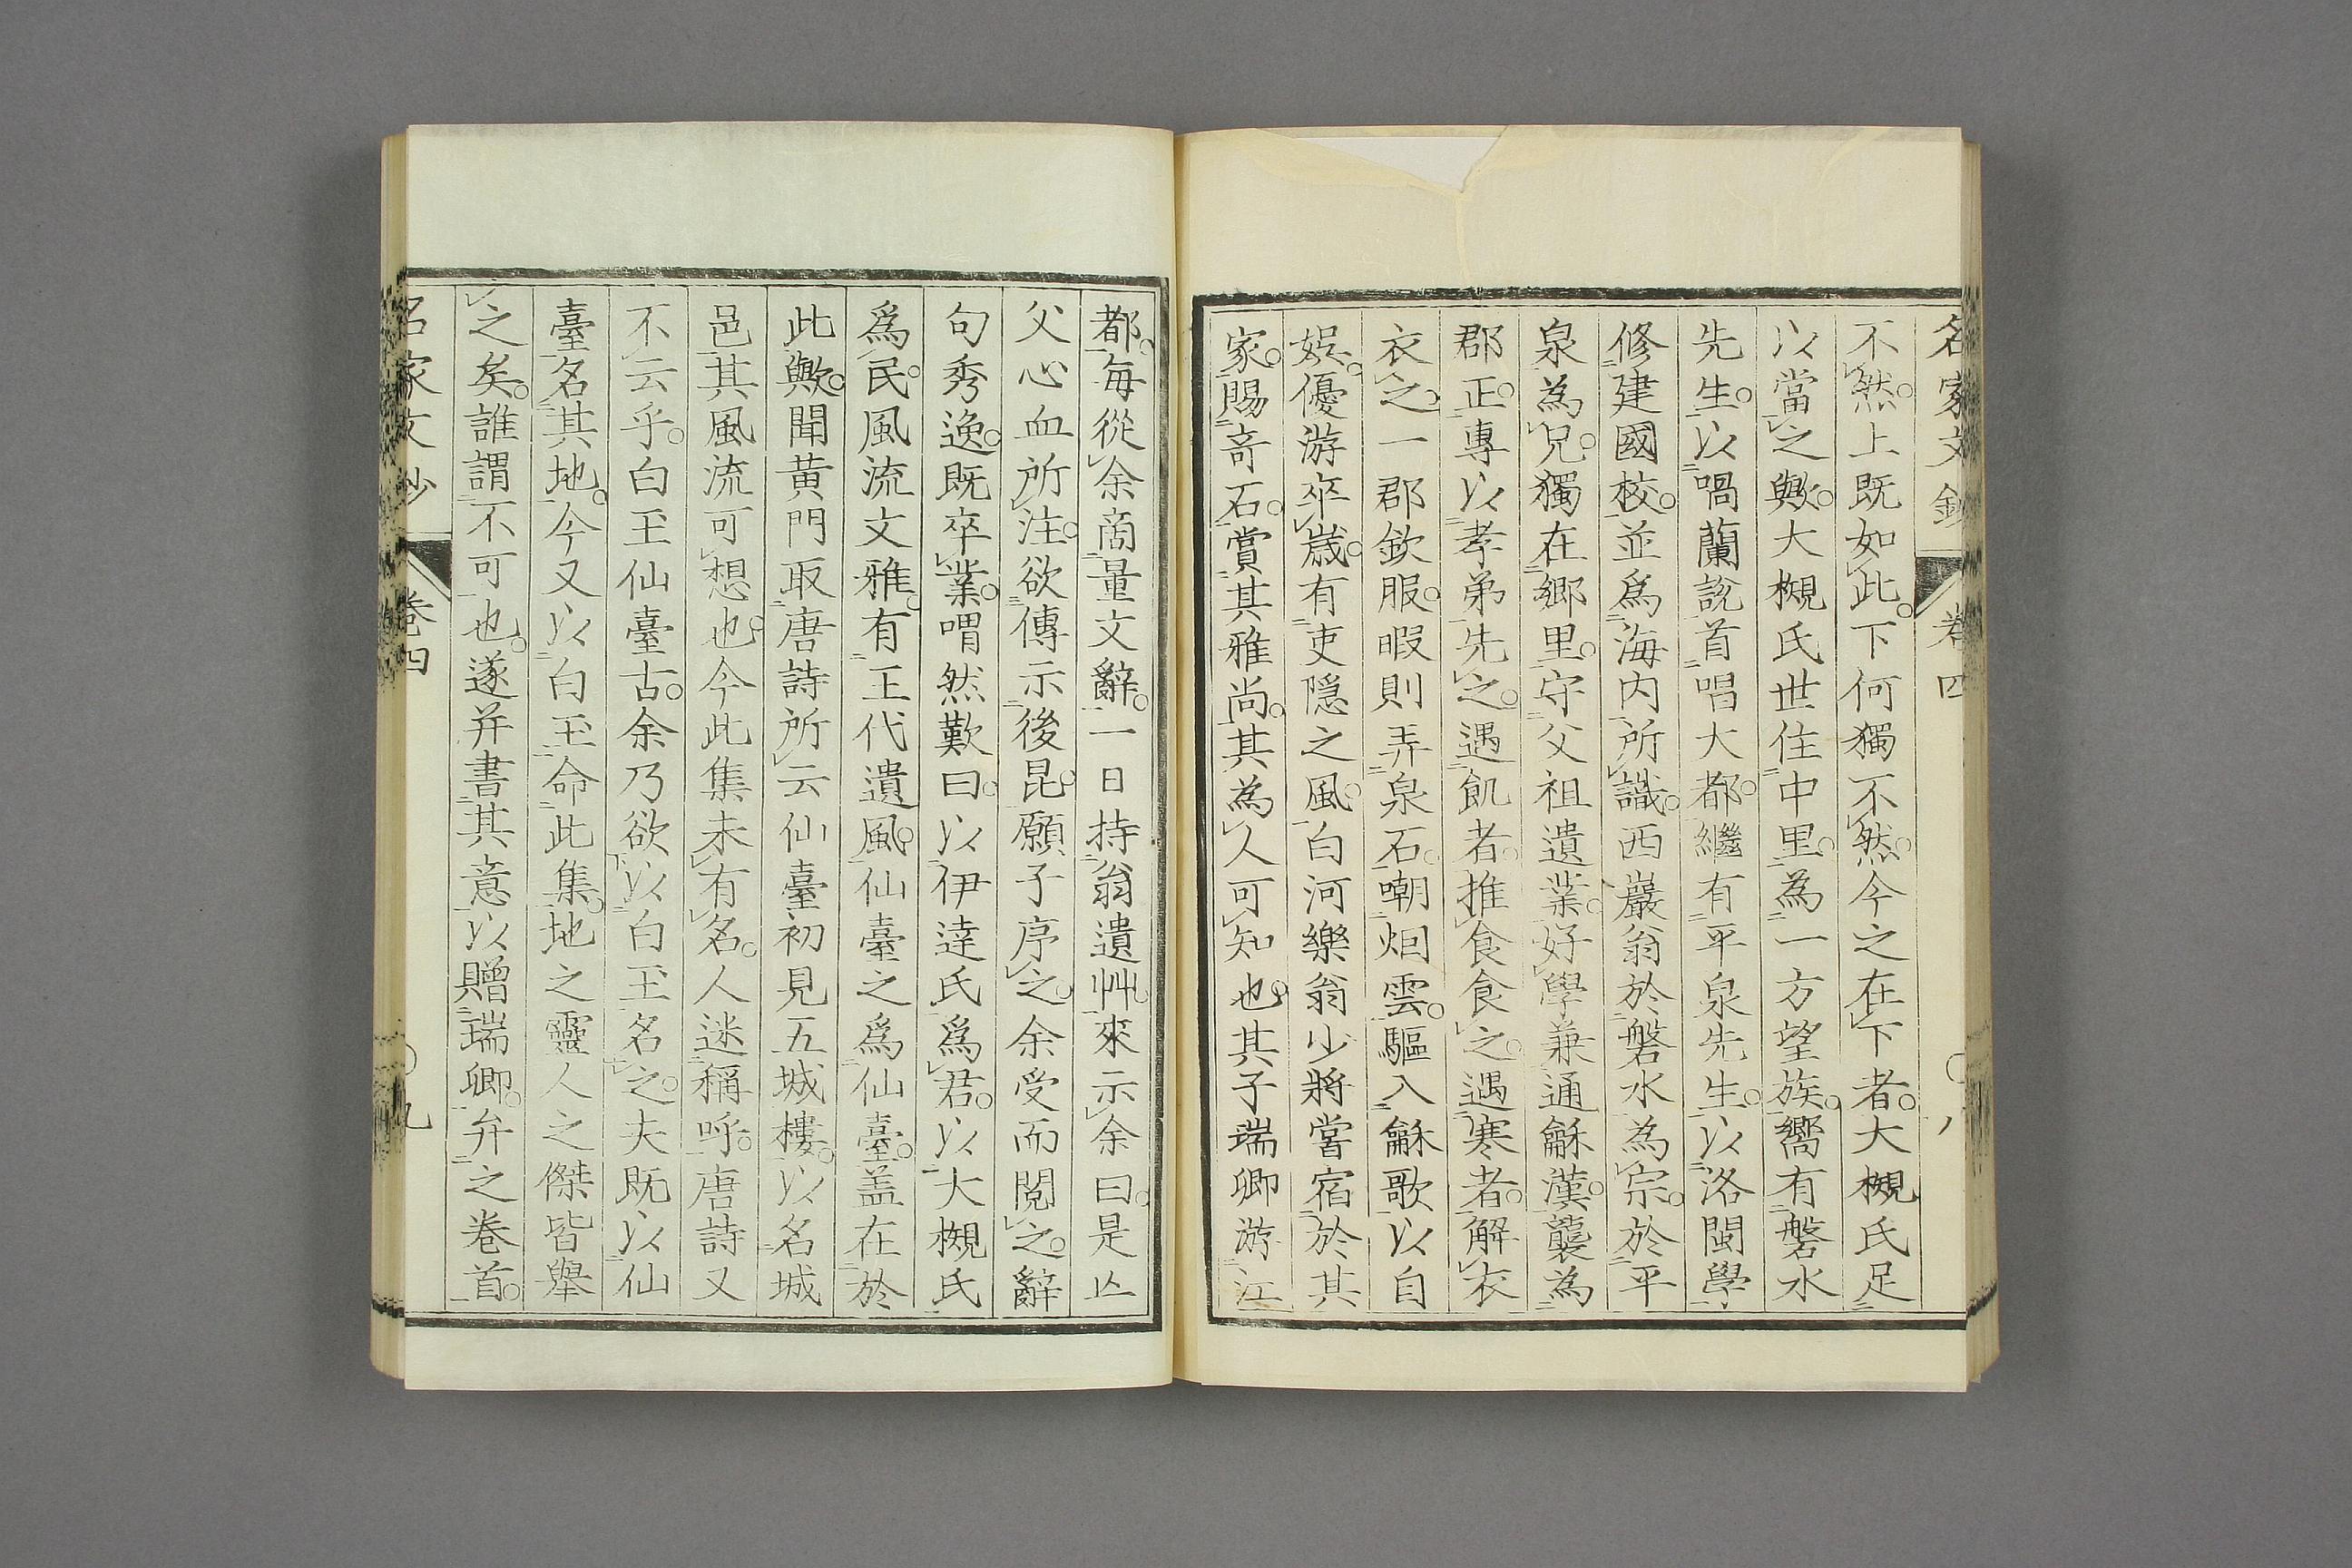 名家文鈔 卷四 〇八
不然。上既如此。下何獨不然。今之在下者。大槻氏足
以當之歟。大槻氏世住中里。為一方望族。嚮有磐水
先生。以喎蘭說首唱大都。繼有平泉先生。以洛閩學
修建國校。並爲海内所識。西巖翁於磐水為宗。於平
泉為兄。獨在鄉里。守父祖遺業。好學兼通龢漢。襲為
郡正。專以孝弟先之。遇飢者。推食食之。遇寒者。解衣
衣之。一郡欽服。暇則弄泉石。嘲烟雲。驅入龢歌以自
娛。優游卒歲。有吏隱之風。白河樂翁少將嘗宿於其
家。賜奇石。賞其雅尚。其為人可知也。其子瑞卿游江
都。每從余商量文辭。一日持翁遺艸來示余曰。是亾
父心血所注。欲傳示後昆。願子序之。余受而閱之。辭
句秀逸。既卒業。喟然歎曰。以伊達氏爲君。以大槻氏
爲民。風流文雅。有王代遺風。仙臺之爲仙臺。盖在於
此歟。聞黄門取唐詩所云仙臺初見五城樓。以名城
邑。其風流可想也。今此集未有名。人迷稱呼。唐詩又
不云乎。白玉仙臺古。余乃欲以白玉名之。夫既以仙
臺名其地。今又以白玉命此集。地之靈人之傑皆舉
之矣。誰謂不可也。遂并書其意以贈瑞卿。弁之卷首。
名家文鈔 卷四 〇九